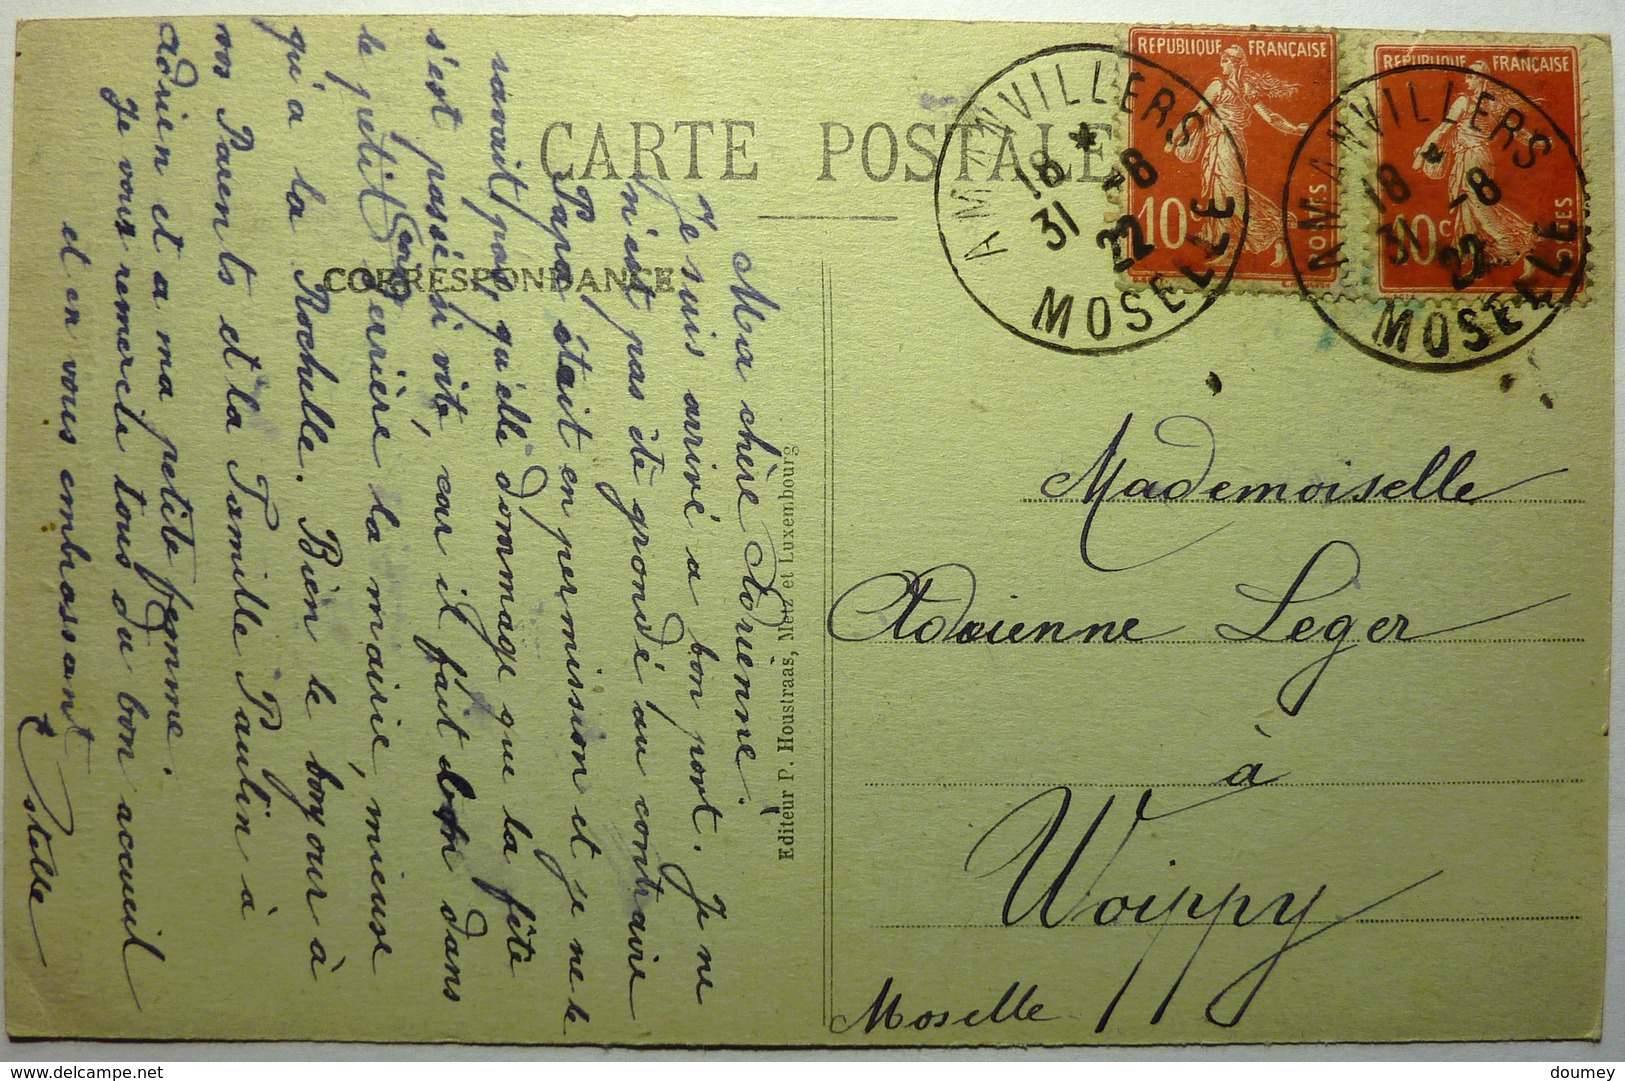 CARTE POSTALE
CORRESPONDANCE
Ma chère Adrienne.
Je suis arrivé a bon port. Je ne
n'est pas été grondé au contraire
Papa était en permission et je ne le
savait pas, qu'elle dommage que la fête
s'est passé si vite, car il fait bon dans
le petit derrière la mairie, mieux
qu'a la Rochulle. Bien le bonjour à
vos Parents et la Famille Paulin à
adrien et a ma petite femme.
Je vous remercie tous du bon accueil
et en vous embrassant
Estelle
Editeur P. Houstraas, Metz et Luxembourg
REPUBLIQUE FRANÇAISE
10c
POSTES
REPUBLIQUE FRANÇAISE
10c
POSTES
AMANVILLERS
18 * 31 -8 22
MOSELLE
AMANVILLERS
18 * 31 -8 22
MOSELLE
Mademoiselle
Adrienne Leger
à
Woippy
Moselle
doumey